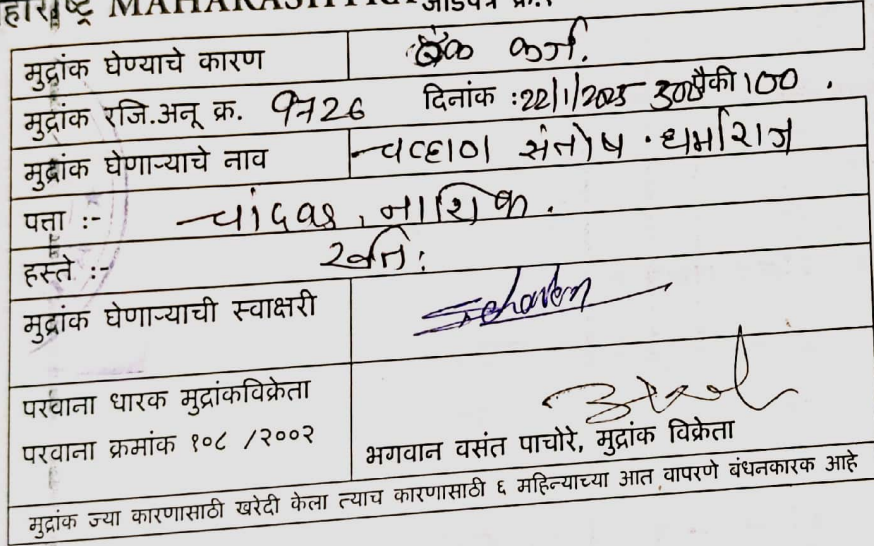 महाराष्ट्र MAHARASHTRA जोडपत्र क्र.१
मुद्रांक घेण्याचे कारण बँक कर्ज.
मुद्रांक रजि.अनू क्र. 9726 दिनांक :22/1/2025 300पैकी 100.
मुद्रांक घेणाऱ्याचे नाव चव्हाण संतोष धर्मराज
पत्ता :- चांदवड, नाशिक.
हस्ते :- स्वतः
मुद्रांक घेणाऱ्याची स्वाक्षरी
परवाना धारक मुद्रांकविक्रेता
परवाना क्रमांक १०८ /२००२
भगवान वसंत पाचोरे, मुद्रांक विक्रेता
मुद्रांक ज्या कारणासाठी खरेदी केला त्याच कारणासाठी ६ महिन्याच्या आत वापरणे बंधनकारक आहे